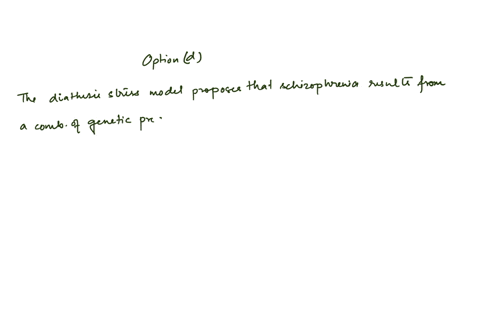 Option (d)
The diathesis stress model proposes that schizophrenia results from
a comb. of genetic pr.